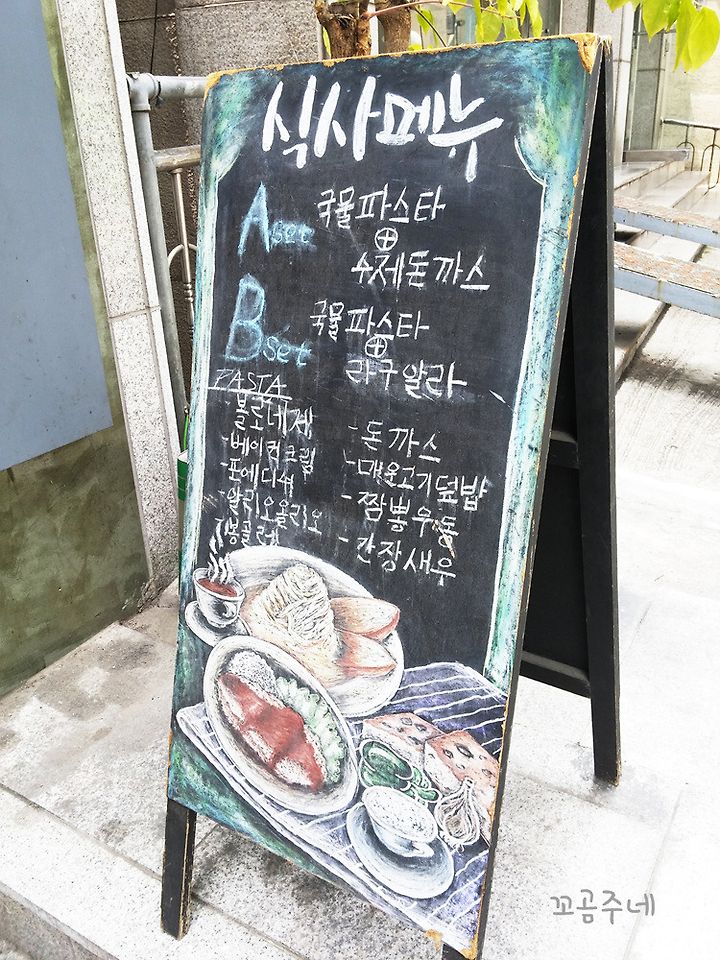 식사메뉴
A set 국물파스타
⊕
수제돈까스
B set 국물파스타
⊕
라구알라
PASTA
볼로네제
-베이컨크림
-포에디셔
-알리오올리오
봉골레
-돈까스
-매운고기덮밥
-짬뽕우동
-간장새우
꼬곰주네